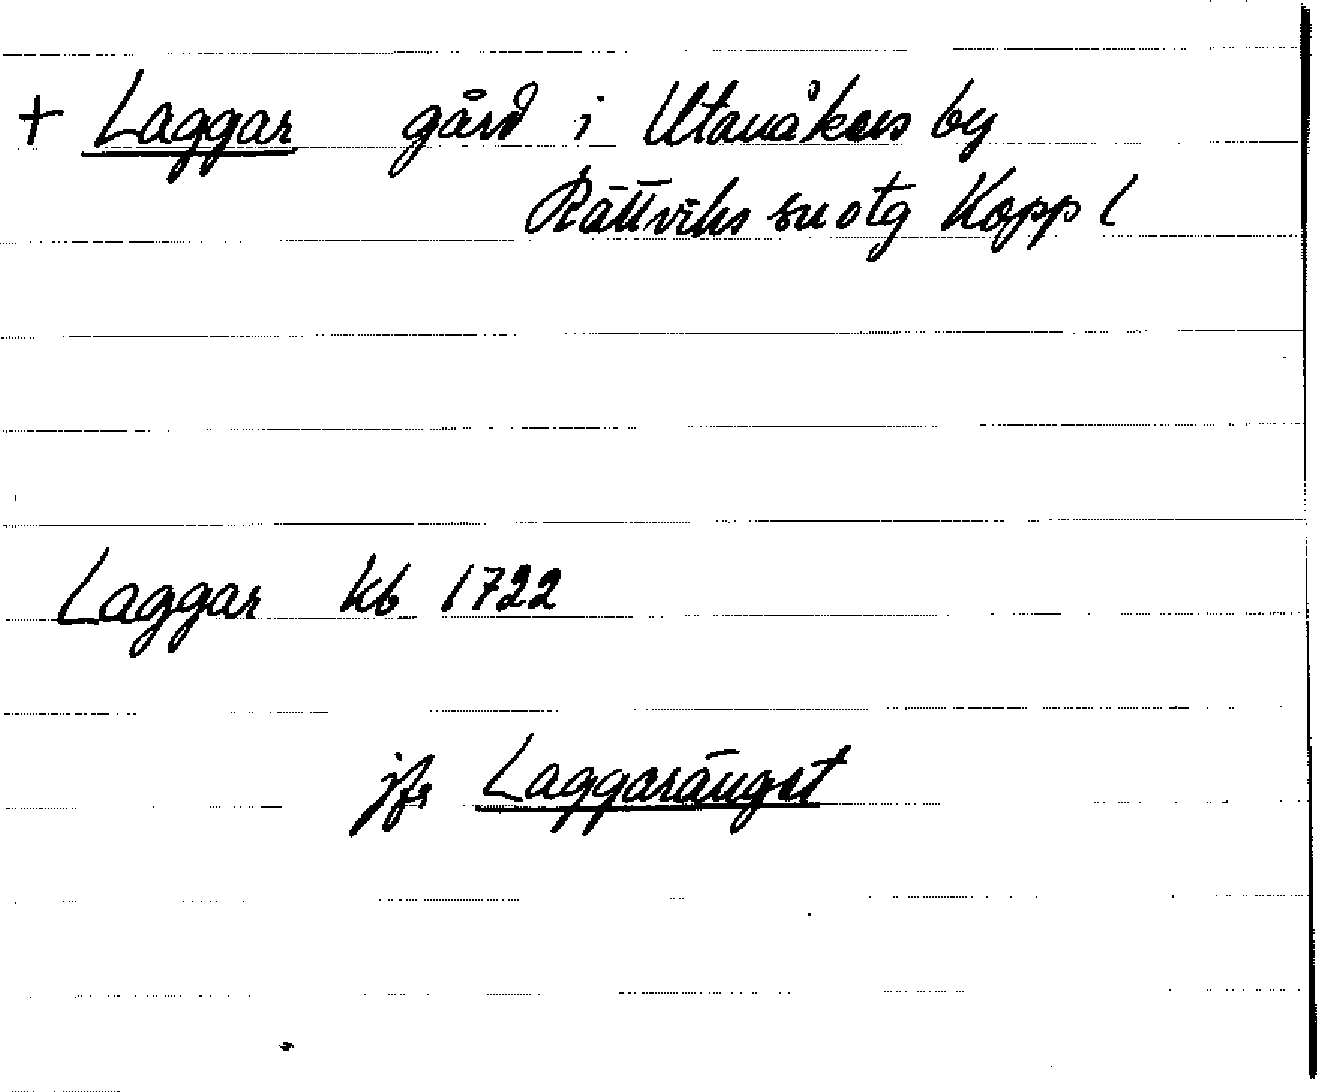 + Laggar gård i Utanåkers by
Rättviks sn otg Kopp l
Laggar kb 1722
jfr Laggaränget